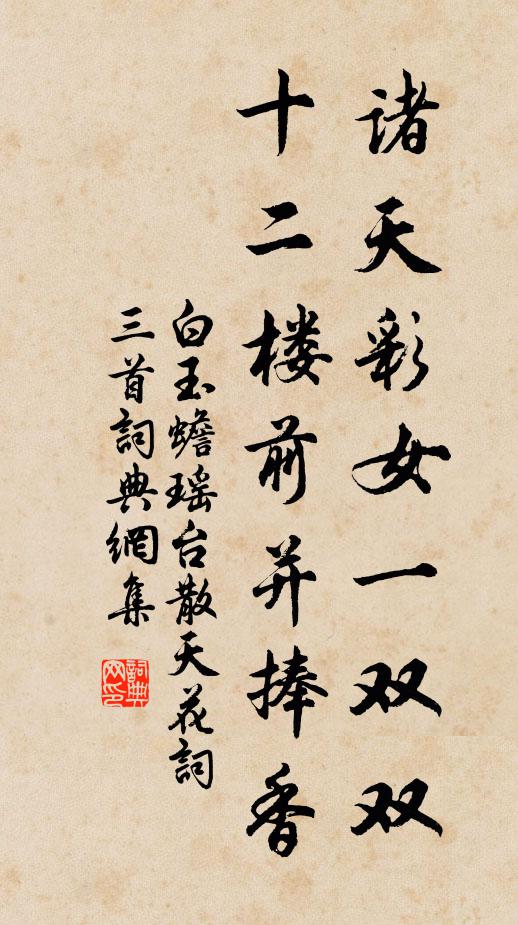 诸天彩女一双双
十二楼前并捧香
白玉蟾瑶台散天花詞
三首詞典網集
詞典网印